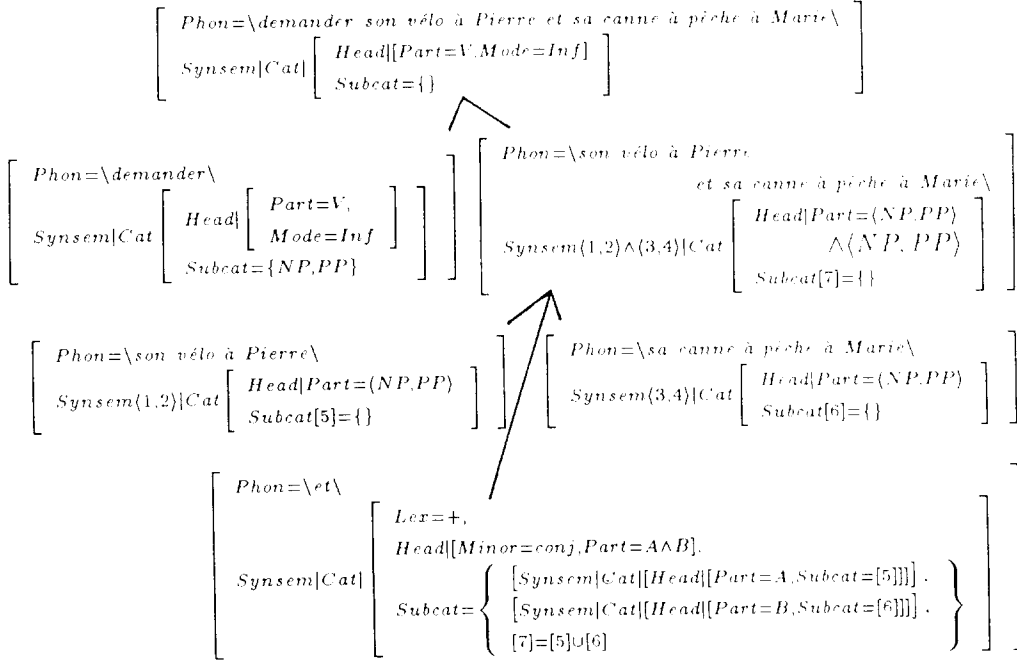 Phon=\demander son vélo à Pierre et sa canne à pêche à Marie\
Synsem|Cat| Head|[Part=V,Mode=Inf]
Subcat={}
Phon=\demander\
Synsem|Cat Head| Part=V,
Mode=Inf
Subcat={NP,PP}
Phon=\son vélo à Pierre
et sa canne à pêche à Marie\
Synsem⟨1,2⟩∧⟨3,4⟩|Cat Head|Part=⟨NP,PP⟩
∧⟨NP,PP⟩
Subcat[7]={}
Phon=\son vélo à Pierre\
Synsem⟨1,2⟩|Cat Head|Part=⟨NP,PP⟩
Subcat[5]={}
Phon=\sa canne à pêche à Marie\
Synsem⟨3,4⟩|Cat Head|Part=⟨NP,PP⟩
Subcat[6]={}
Phon=\et\
Synsem|Cat| Lex=+,
Head|[Minor=conj,Part=A∧B].
Subcat= { [Synsem|Cat|[Head|[Part=A,Subcat=[5]]]] .
[Synsem|Cat|[Head|[Part=B,Subcat=[6]]]] .
[7]=[5]∪[6] }